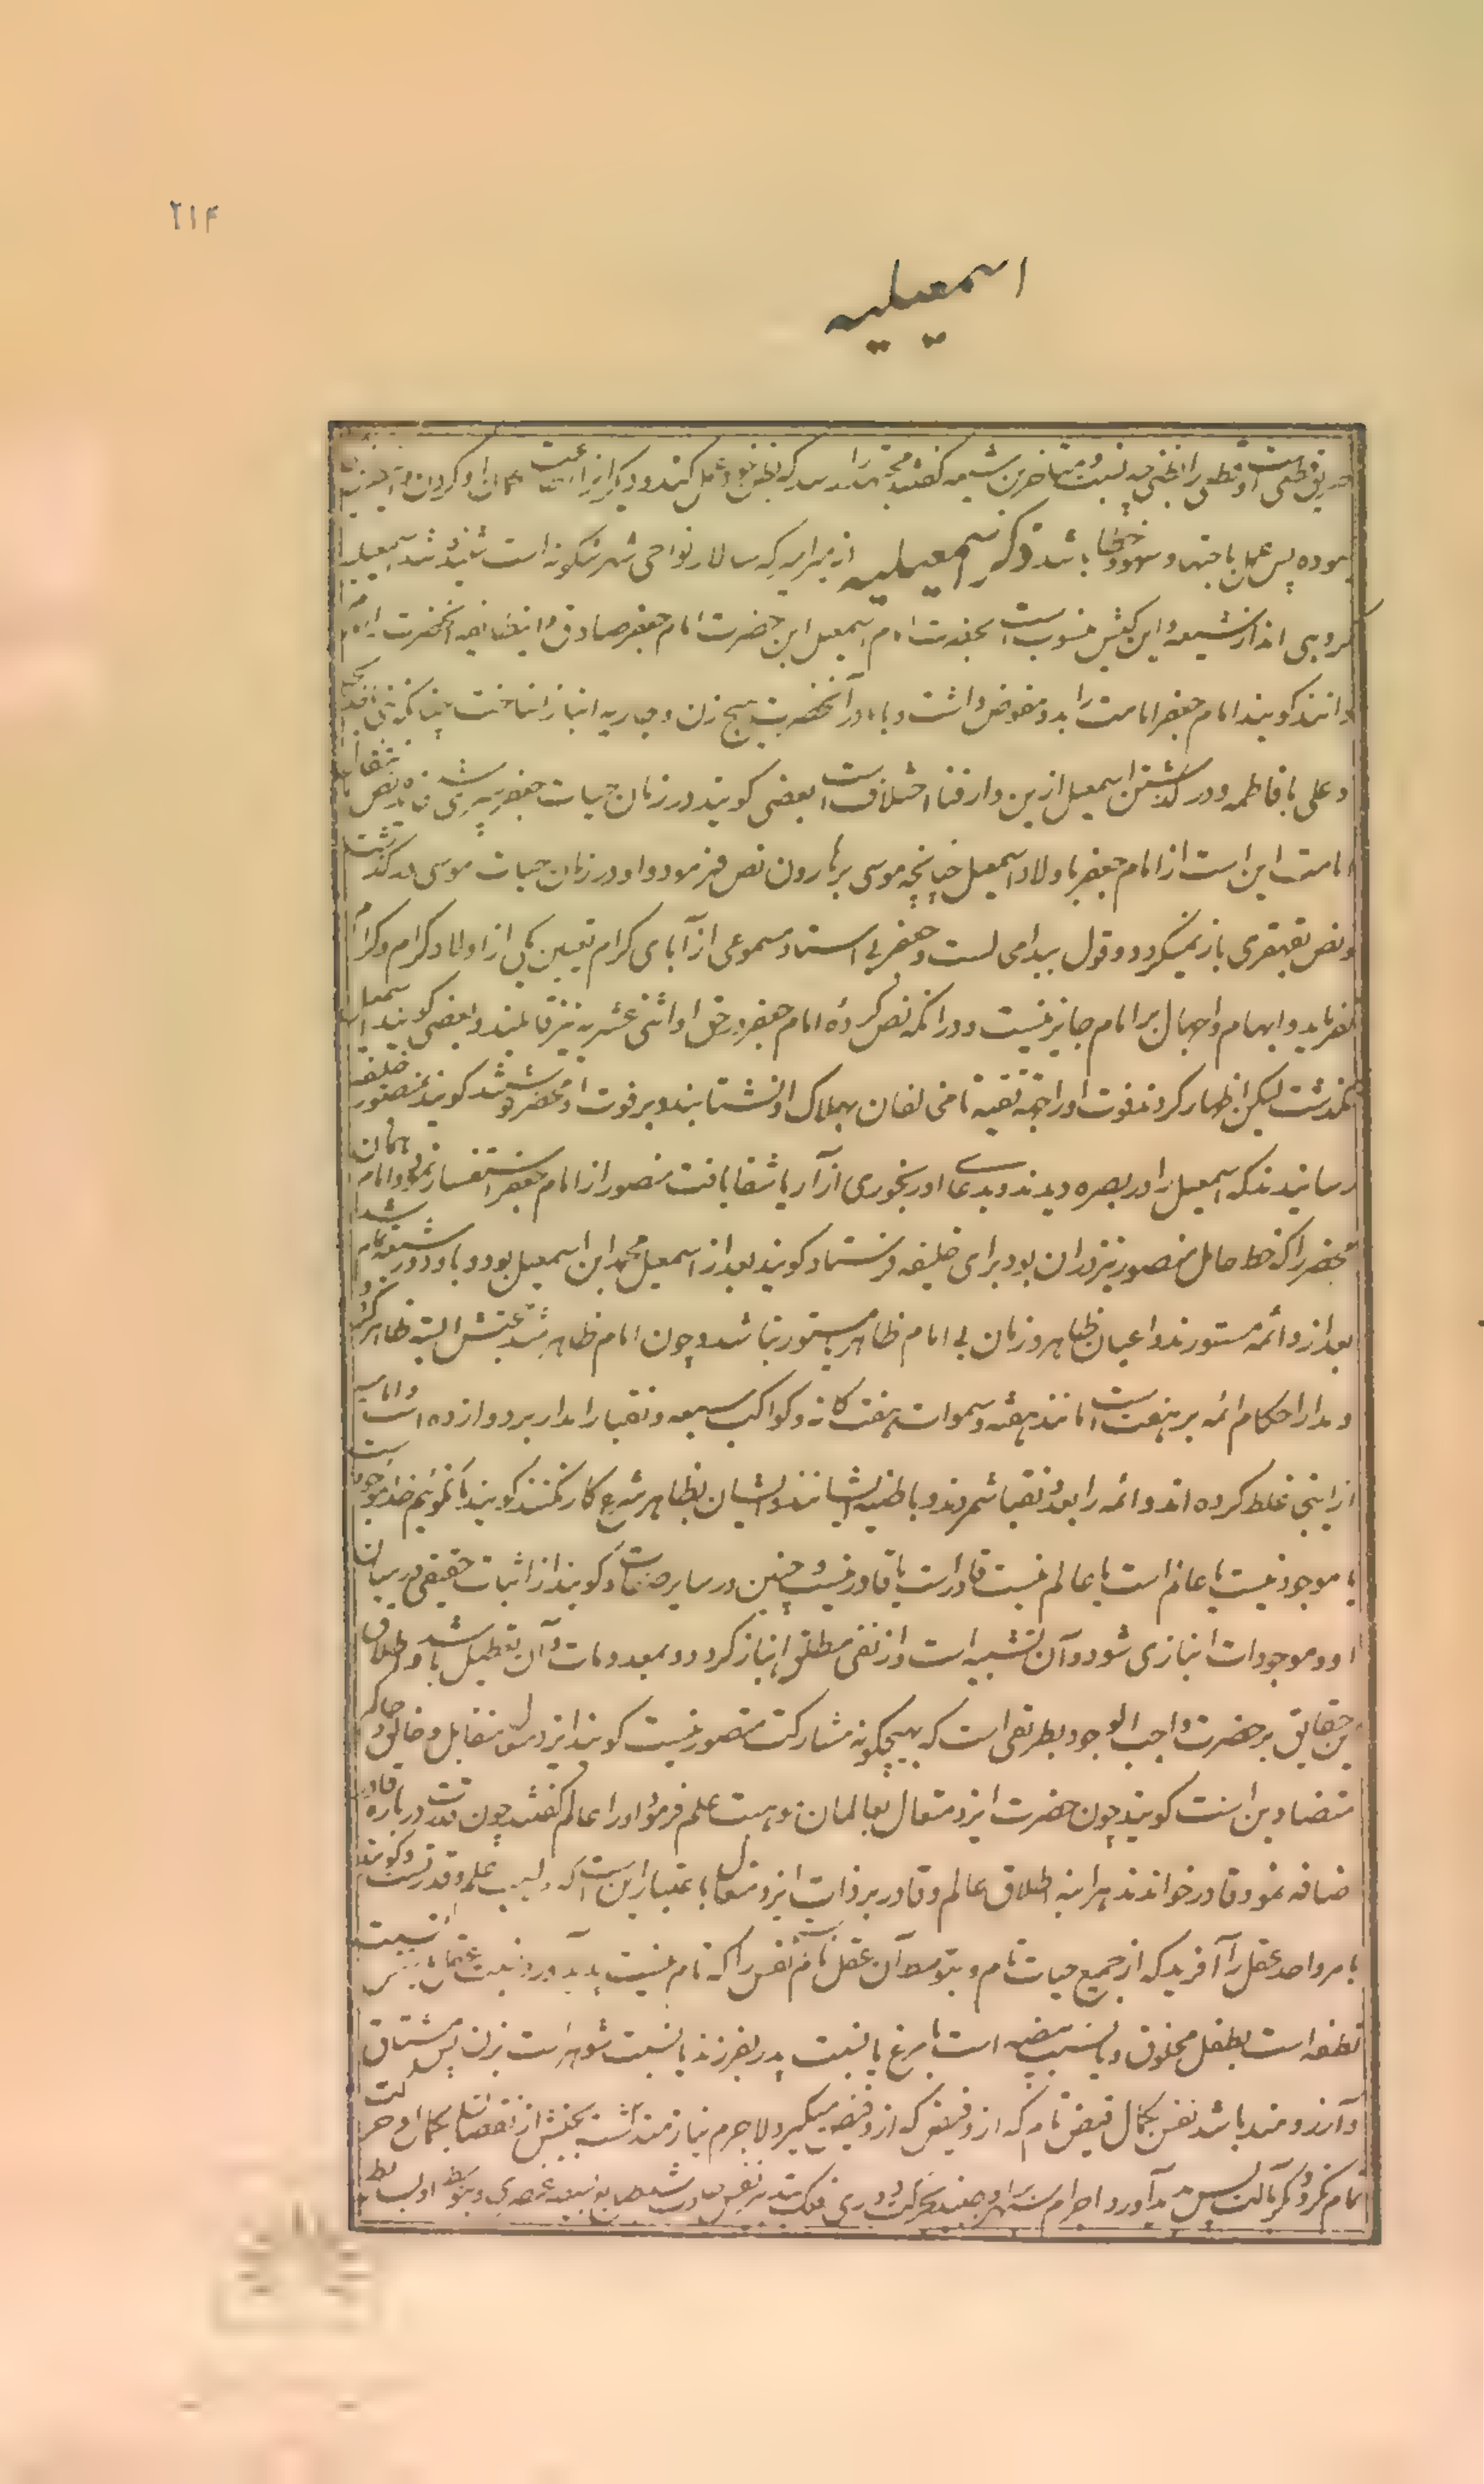 ۲۱۴
اسمعیلیه
طریق قطعی است و قطعی را بظنی چه نسبت و متاخرین شیعه گفتند مجتهد را که بظن خود عمل کند و دیگران را
پس عمل باجتهاد سهو و خطا باشد ذکر اسمعیلیه از میرامیر که سالار نواحی شهر شکونه است شنیده شد اسمعیلیه
گروهی اند از شیعه و این کیش منسوب است بحضرت امام اسمعیل ابن حضرت امام جعفر صادق و این طایفه آنحضرت را امام
دانند گویند امام جعفر امامت را بدو مفوض داشت و با مادر آنحضرت هیچ زن و جاریه انباز نساخت چنانکه نبی با خدیجه
و علی با فاطمه و در گذشتن اسمعیل ازین دار فنا اختلاف است بعضی گویند در زمان حیات جعفر سپری شد فایده نص انتقال
امامت این است از امام جعفر باولاد اسمعیل چنانچه موسی بر هارون نص فرمود و او در زمان حیات موسی در گذشت
و نص بقهقری باز نمیگردد و قول ببدا می است و جعفر بی استناد مسموعی از آبای کرام تعیین یکی از اولاد کرام و کرام
نفرماید و ابهام و اجهال بر امام جایز نیست و در آنکه نص کرده امام جعفر در حق او اثنی عشریه نیز قایلند و بعضی گویند اسمعیل
نگذشت لیکن اظهار کردند فوت او را جهت تقیه تا مخالفان بهلاک او نشتابند و بر فوت او محضر نوشتند گویند بمنصور خلیفه
رسانیدند که اسمعیل را در بصره دیدند و بدعای او رنجوری از آزار یا شفا یافت منصور از امام جعفر استفسار نمود امام همان
محضر را که خط عامل منصور نیز در ان بود برای خلیفه فرستاد گویند بعد از اسمعیل محمد ابن اسمعیل بود و باو دور سبعه تمام شد
بعد ازو ائمه مستورند و داعیان ظاهر و زمان بی امام ظاهر یا مستور نباشد و چون امام ظاهر شد دعوتش البته ظاهر گردد
و مدار احکام ائمه بر هفت است مانند هفته و سموات هفت گانه و کواکب سبعه و نقبا را مدار بر دوازده است و امامیه
ازاینجا غلط کرده اند و ائمه را بعدد نقبا شمردند و باطنیه ایشانند و ایشان بظاهر شرع کار نکنند گویند ما نگوئیم خدا موجود است
یا موجود نیست یا عالم است یا عالم نیست قادر است یا قادر نیست و چنین در سایر صفات و گویند از اثبات حقیقی در میان
او و موجودات انبازی شود و آن تشبیه است و از نفی مطلق انباز گردد بمعدومات و آن تعطیل باشد و اطلاق
این حقایق بر حضرت واجب الوجود بطریقی است که بهیچگونه مشارکت متصور نیست گویند ایزد متعال متقابل و خالق و حاکم
متضادین است گویند چون حضرت ایزد متعال بعالمان موهبت علم فرمود او را عالم گفتند چون قدرت درباره قادر
ضافه نمود قادر خواندند هر اینه اطلاق عالم و قادر بر ذات ایزد متعال باعتبار این است که واهب علم و قدرتست و گویند
بامر واحد عقل را آفرید که از جمیع حیات تام و بتوسط آن عقل تام نفس را که تام نیست پدید آورد نسبت عقل با نفس نسبت
نطفه است بطفل مخلوق و یا نسبت بیضه است با مرغ یا نسبت پدر بفرزند یا نسبت شوهر است بزن پس مشتاق
و آرزومند باشد نفس بکمال فیض تام که ازو فیض میگیرد لاجرم نیازمند گشت بجنبش از نقصان بکمال و حرکت
تمام نکردد مگر بآلت پس پدید آورد اجرام